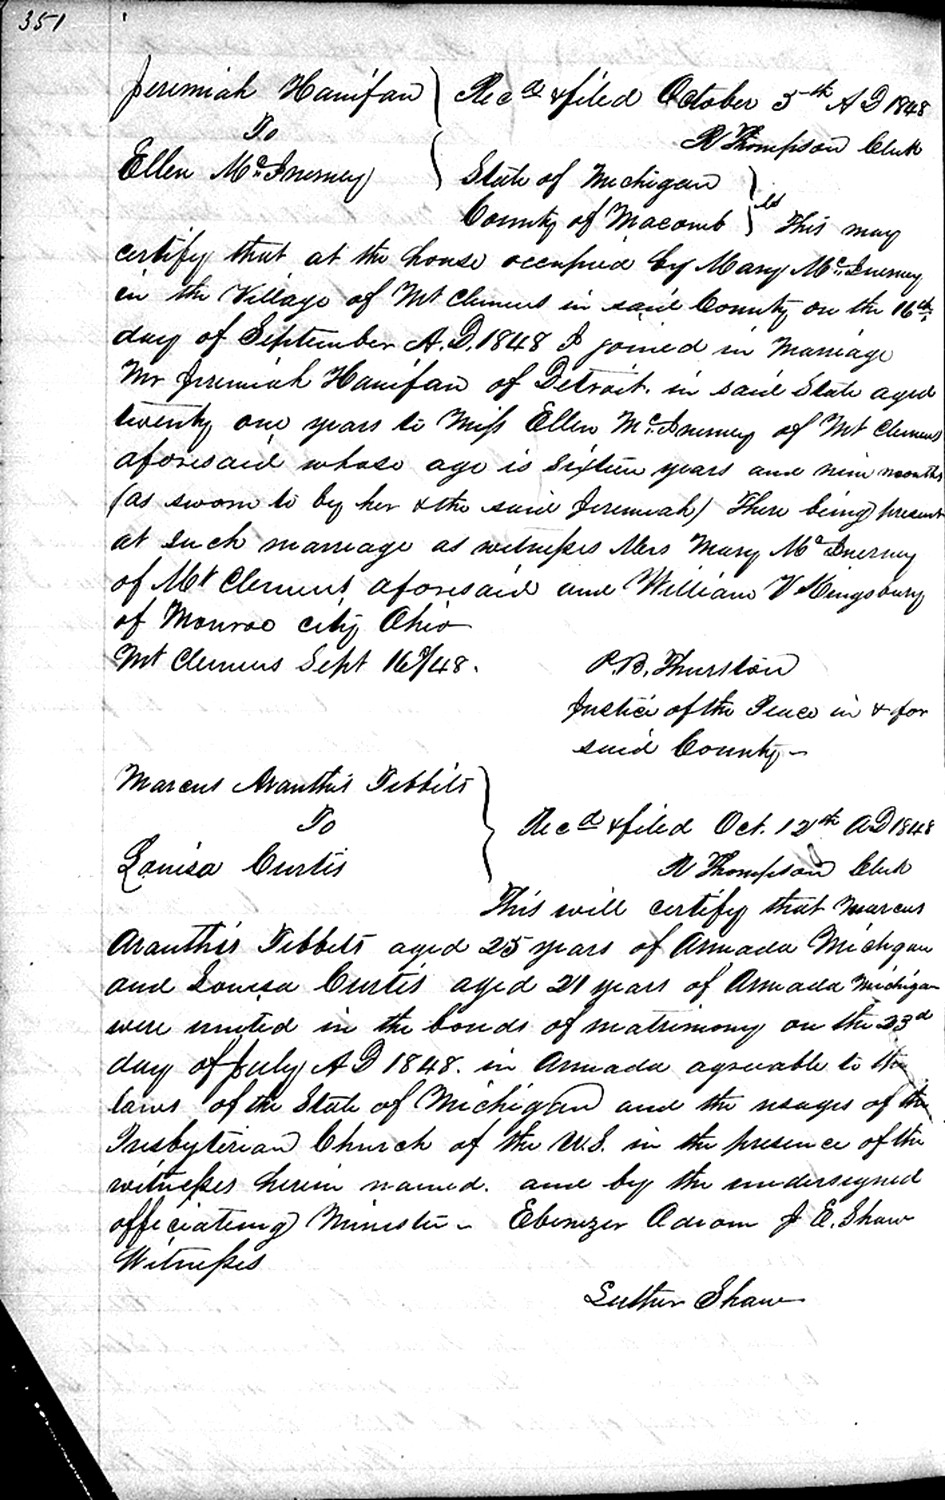 351
Jeremiah Hanifan
To
Ellen Mc Inerney
Recd & filed October 5th A D 1848
R Thompson Clerk
State of Michigan
County of Macomb } ss This may
certify that at the house occupied by Mary Mc Inerney
in the Village of Mt Clemens in said County on the 16th
day of September A.D. 1848 I joined in Marriage
Mr Jeremiah Hanifan of Detroit in said State aged
twenty one years to Miss Ellen Mc Inerney of Mt Clemens
aforesaid whose age is Sixteen years and nine months
(as sworn to by her & the said Jeremiah) There being present
at such marriage as witnesses Mrs Mary Mc Inerney
of Mt Clemens aforesaid and William V Kingsbury
of Monroe city Ohio
Mt Clemens Sept 16th/48.
P. B. Thurston
Justice of the Peace in & for
said County
Marcus Aranthis Tibbits
To
Louisa Curtis
Recd & filed Oct. 12th A D 1848
R Thompson Clerk
This will certify that Marcus
Aranthis Tibbits aged 25 years of Armada Michigan
and Louisa Curtis aged 21 years of Armada Michigan
were united in the bonds of matrimony on the 23d
day of July A D 1848. in Armada agreeable to the
laws of the State of Michigan and the usages of the
Presbyterian Church of the U.S. in the presence of the
witnesses herein named. and by the undersigned
officiating Minister - Ebenezer Odram J E. Shaw
Witnesses
Luther Shaw